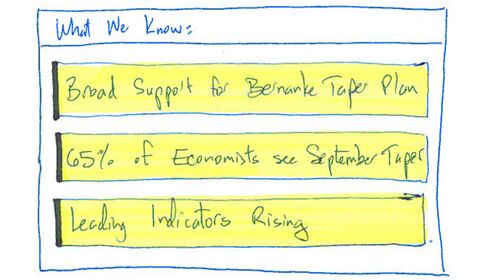 What We Know:
Broad Support for Bernanke Taper Plan
65% of Economists see September Taper
Leading Indicators Rising